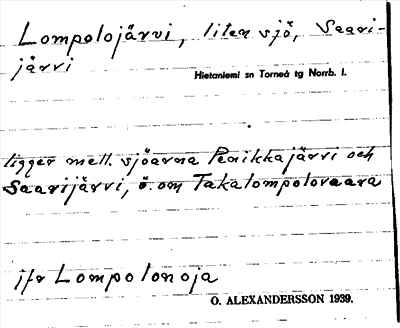 Lompolojärvi, liten sjö, Saari-
järvi
Hietaniemi sn Torneå tg Norrb. l.
ligger mell. sjöarna Penikkajärvi och
Saarijärvi, ö. om Takalompolovaara
jfr Lompolonoja
O. ALEXANDERSSON 1939.